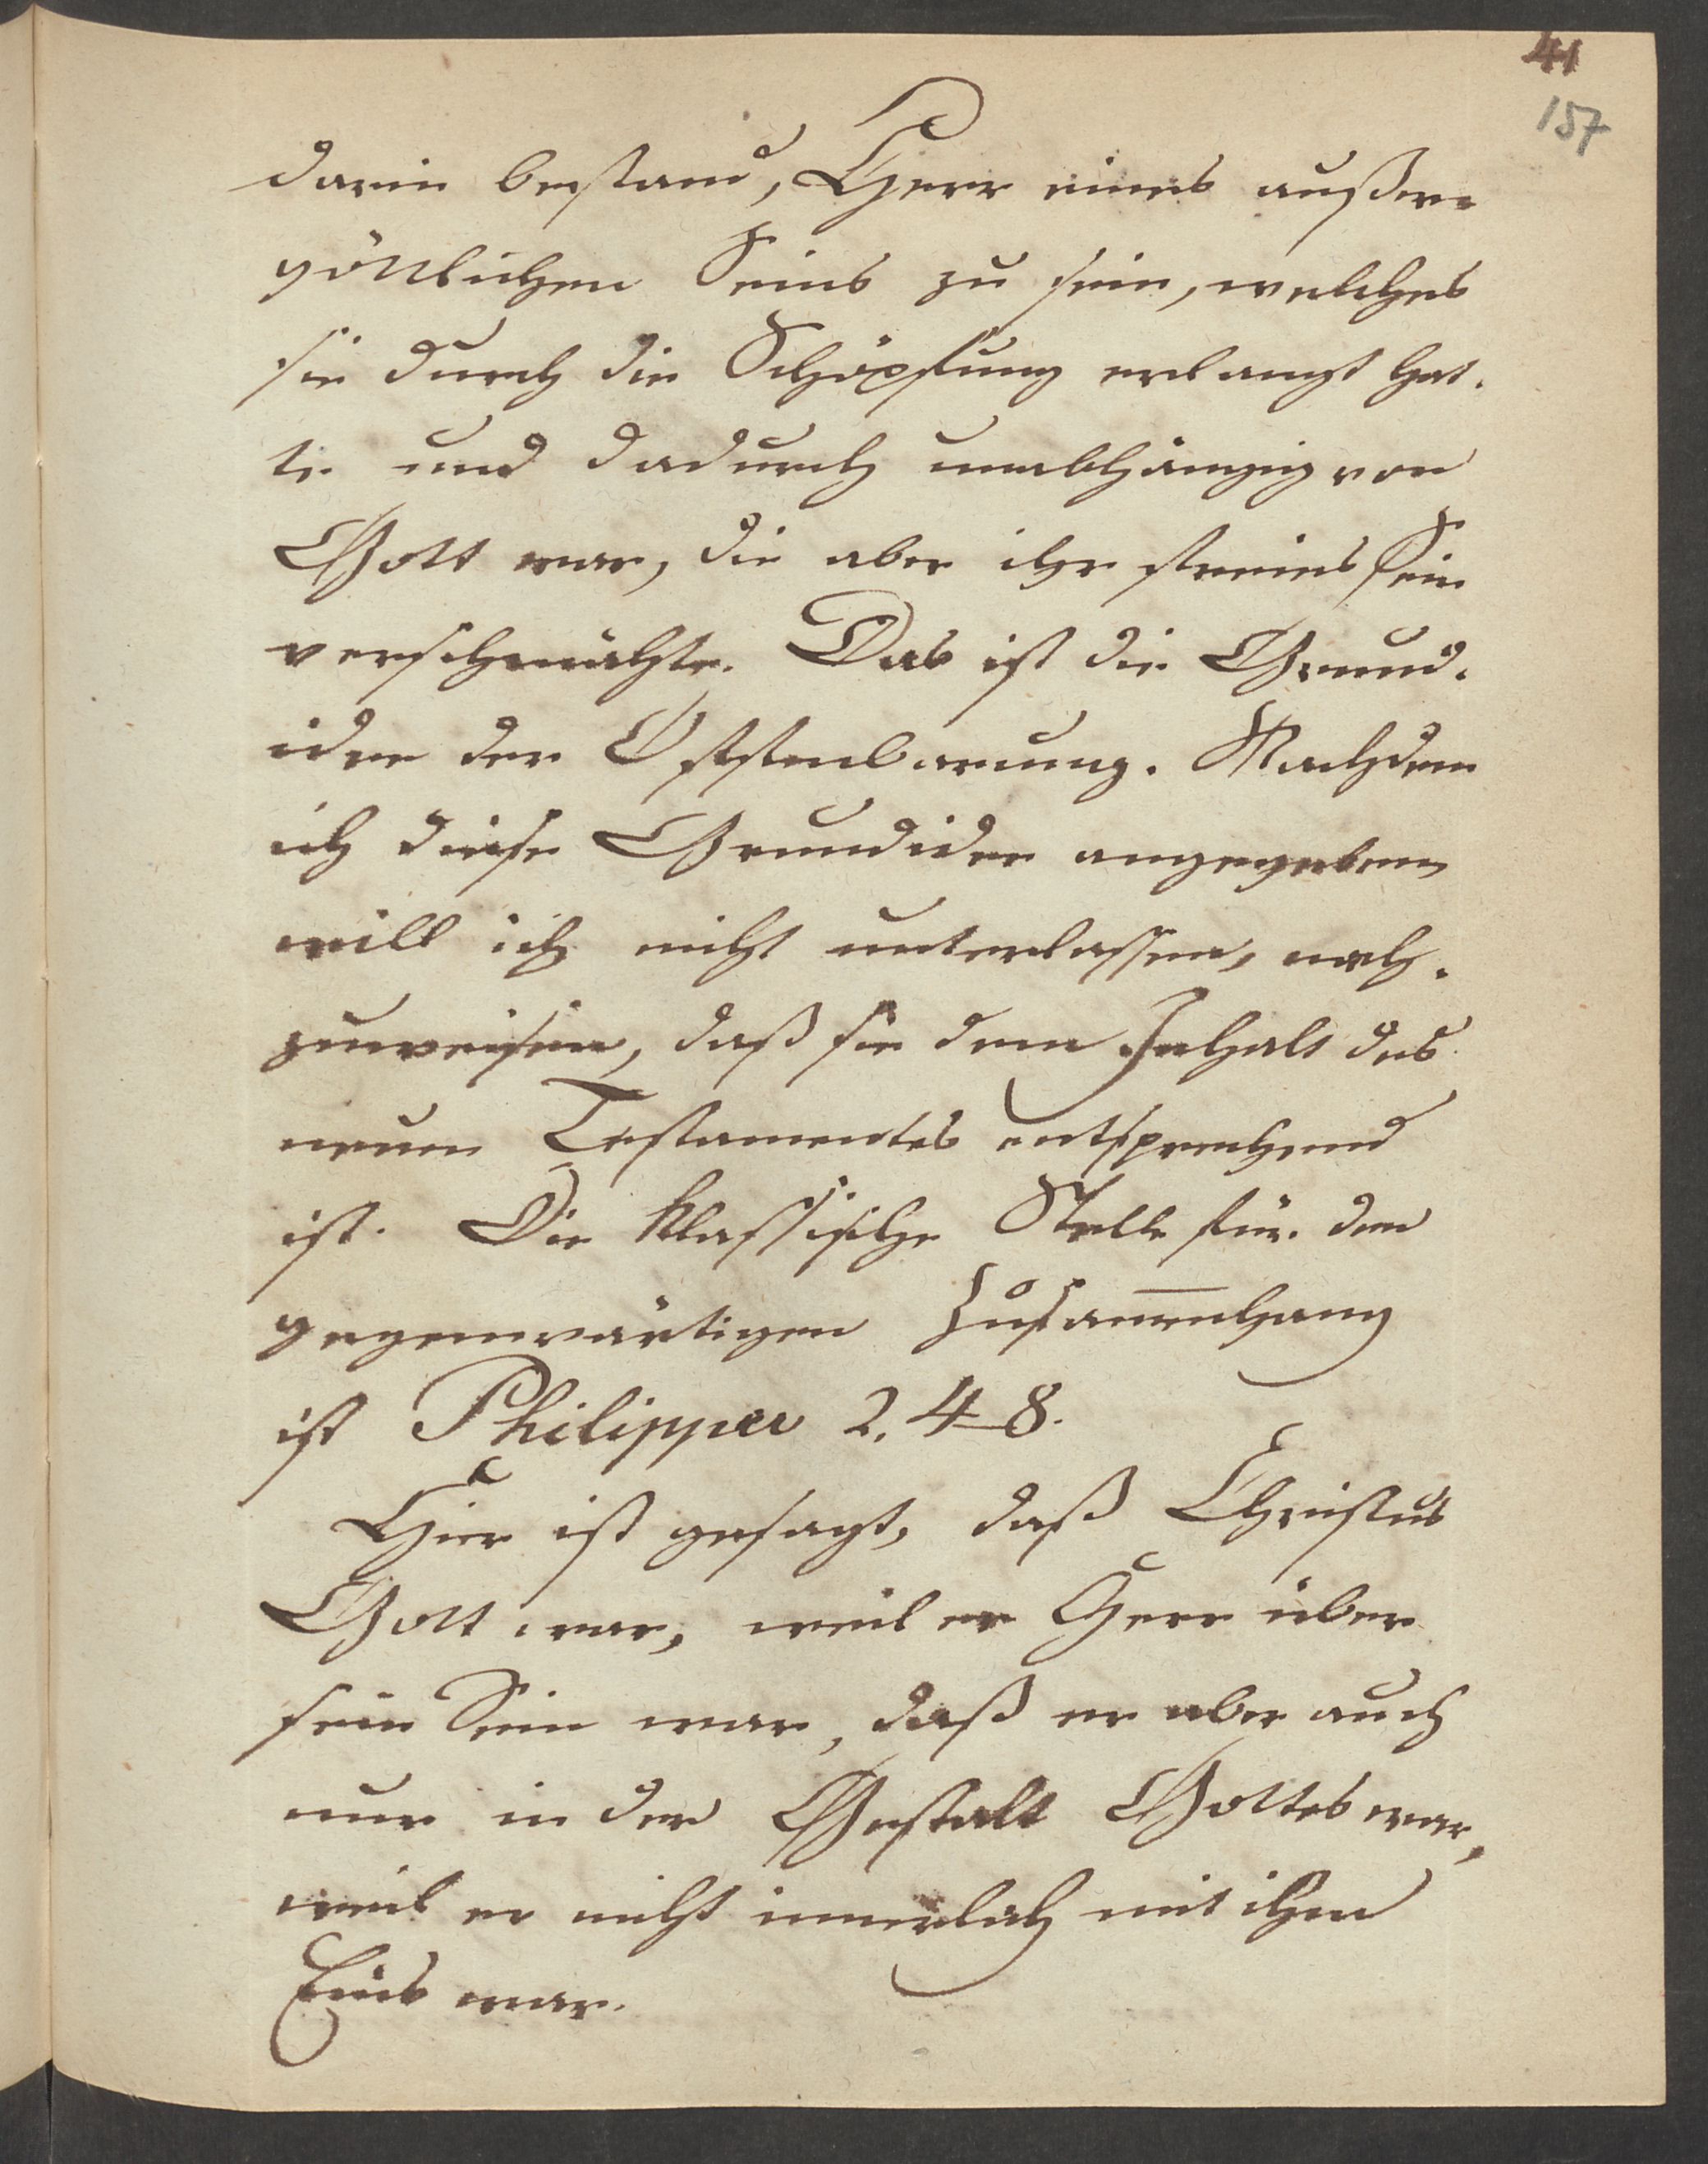 41
157
darin bestand, Herr eines außer-
göttlichen Seins zu sein, welches
sie durch die Schöpfung erlangt hat-
te und dadurch unabhängig von
Gott war, die aber ihr freies Sein
verschmähte. Das ist die Grund-
idee der Offenbarung. Nachdem
ich diese Grundidee angegeben,
will ich nicht unterlassen, nach-
zuweisen, daß sie dem Inhalt des
neuen Testamentes entsprechend
ist. Die klassische Stelle für den
gegenwärtigen Zusam̅enhang
ist Philipper 2. 4–8.
Hier ist gesagt, daß Christus
Gott war, weil er Herr über
sein Sein war, daß er aber auch
nur in der Gestalt Gottes war,
weil er nicht innerlich mit ihm
Eins war.